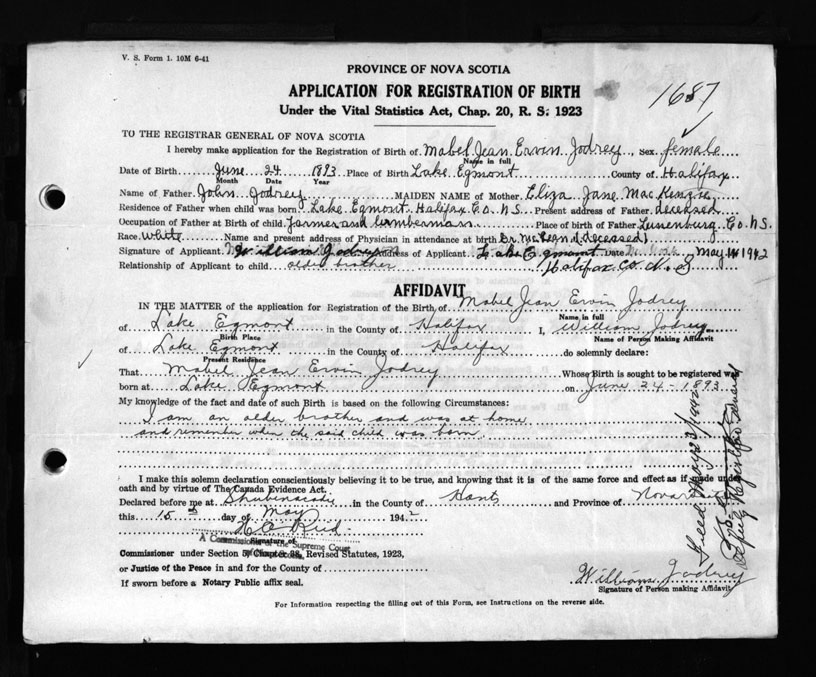 V. S. Form 1. 10M 6-41
PROVINCE OF NOVA SCOTIA
APPLICATION FOR REGISTRATION OF BIRTH
Under the Vital Statistics Act, Chap. 20, R. S. 1923
1687
TO THE REGISTRAR GENERAL OF NOVA SCOTIA
I hereby make application for the Registration of Birth of Mabel Jean Ervin Jodrey, Sex female
Name in full
Date of Birth June 24 1893 Place of Birth Lake Egmont County of Halifax
Month Date Year
Name of Father John Jodrey MAIDEN NAME of Mother Eliza Jane MacKenzie
Residence of Father when child was born Lake Egmont Halifax Co. N.S. Present address of Father deceased
Occupation of Father at Birth of child farmer and lumberman Place of birth of Father Lunenburg Co. N.S.
Race white Name and present address of Physician in attendance at birth Dr. McLean (deceased)
Signature of Applicant William Jodrey Address of Applicant Lake Egmont Date May 1942
Relationship of Applicant to child older brother Halifax Co. N.S
AFFIDAVIT
IN THE MATTER of the application for Registration of the Birth of Mabel Jean Ervin Jodrey
Name in full
of Lake Egmont in the County of Halifax I, William Jodrey
Birth Place Name of Person Making Affidavit
of Lake Egmont in the County of Halifax do solemnly declare:
Present Residence
That Mabel Jean Ervin Jodrey Whose Birth is sought to be registered was
born at Lake Egmont on June 24 - 1893
My knowledge of the fact and date of such Birth is based on the following Circumstances:
I am an older brother and was at home
and remember when the said child was born.
I make this solemn declaration conscientiously believing it to be true, and knowing that it is of the same force and effect as if made under
oath and by virtue of The Canada Evidence Act.
Declared before me at Shubenacadie in the County of Hants and Province of Nova Scotia
this 15th day of May 1942
Signature of
A Commissioner of the Supreme Court
Commissioner under Section 5, Chapter 38, Revised Statutes, 1923,
or Justice of the Peace in and for the County of
If sworn before a Notary Public affix seal.
William Jodrey
Signature of Person making Affidavit
For Information respecting the filling out of this Form, see Instructions on the reverse side.